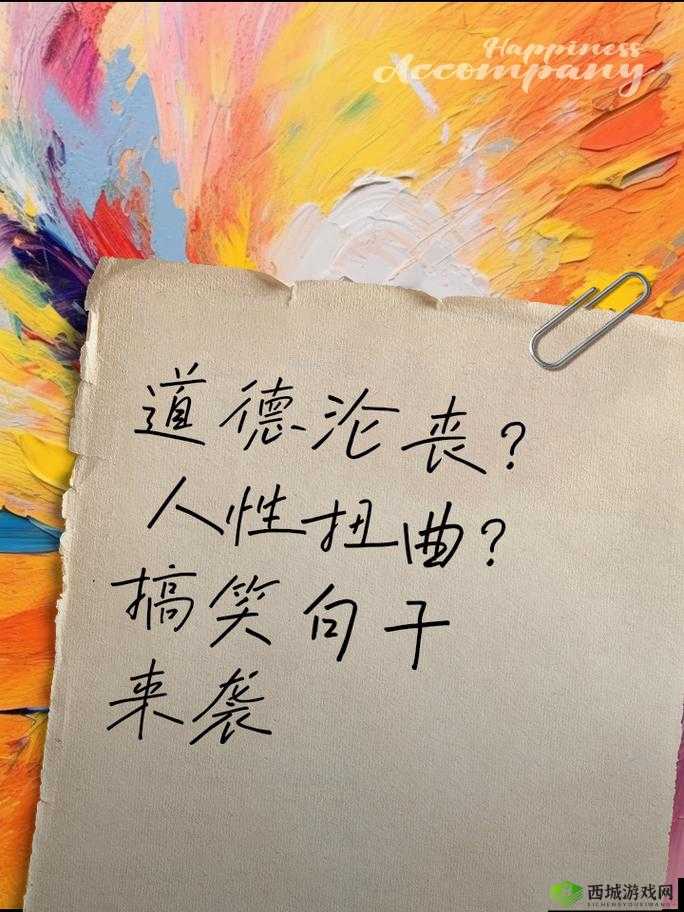 Happiness
Accompany
道德沦丧？
人性扭曲？
搞笑句子
来袭
西城游戏网
XICHENGYOUXIWANG